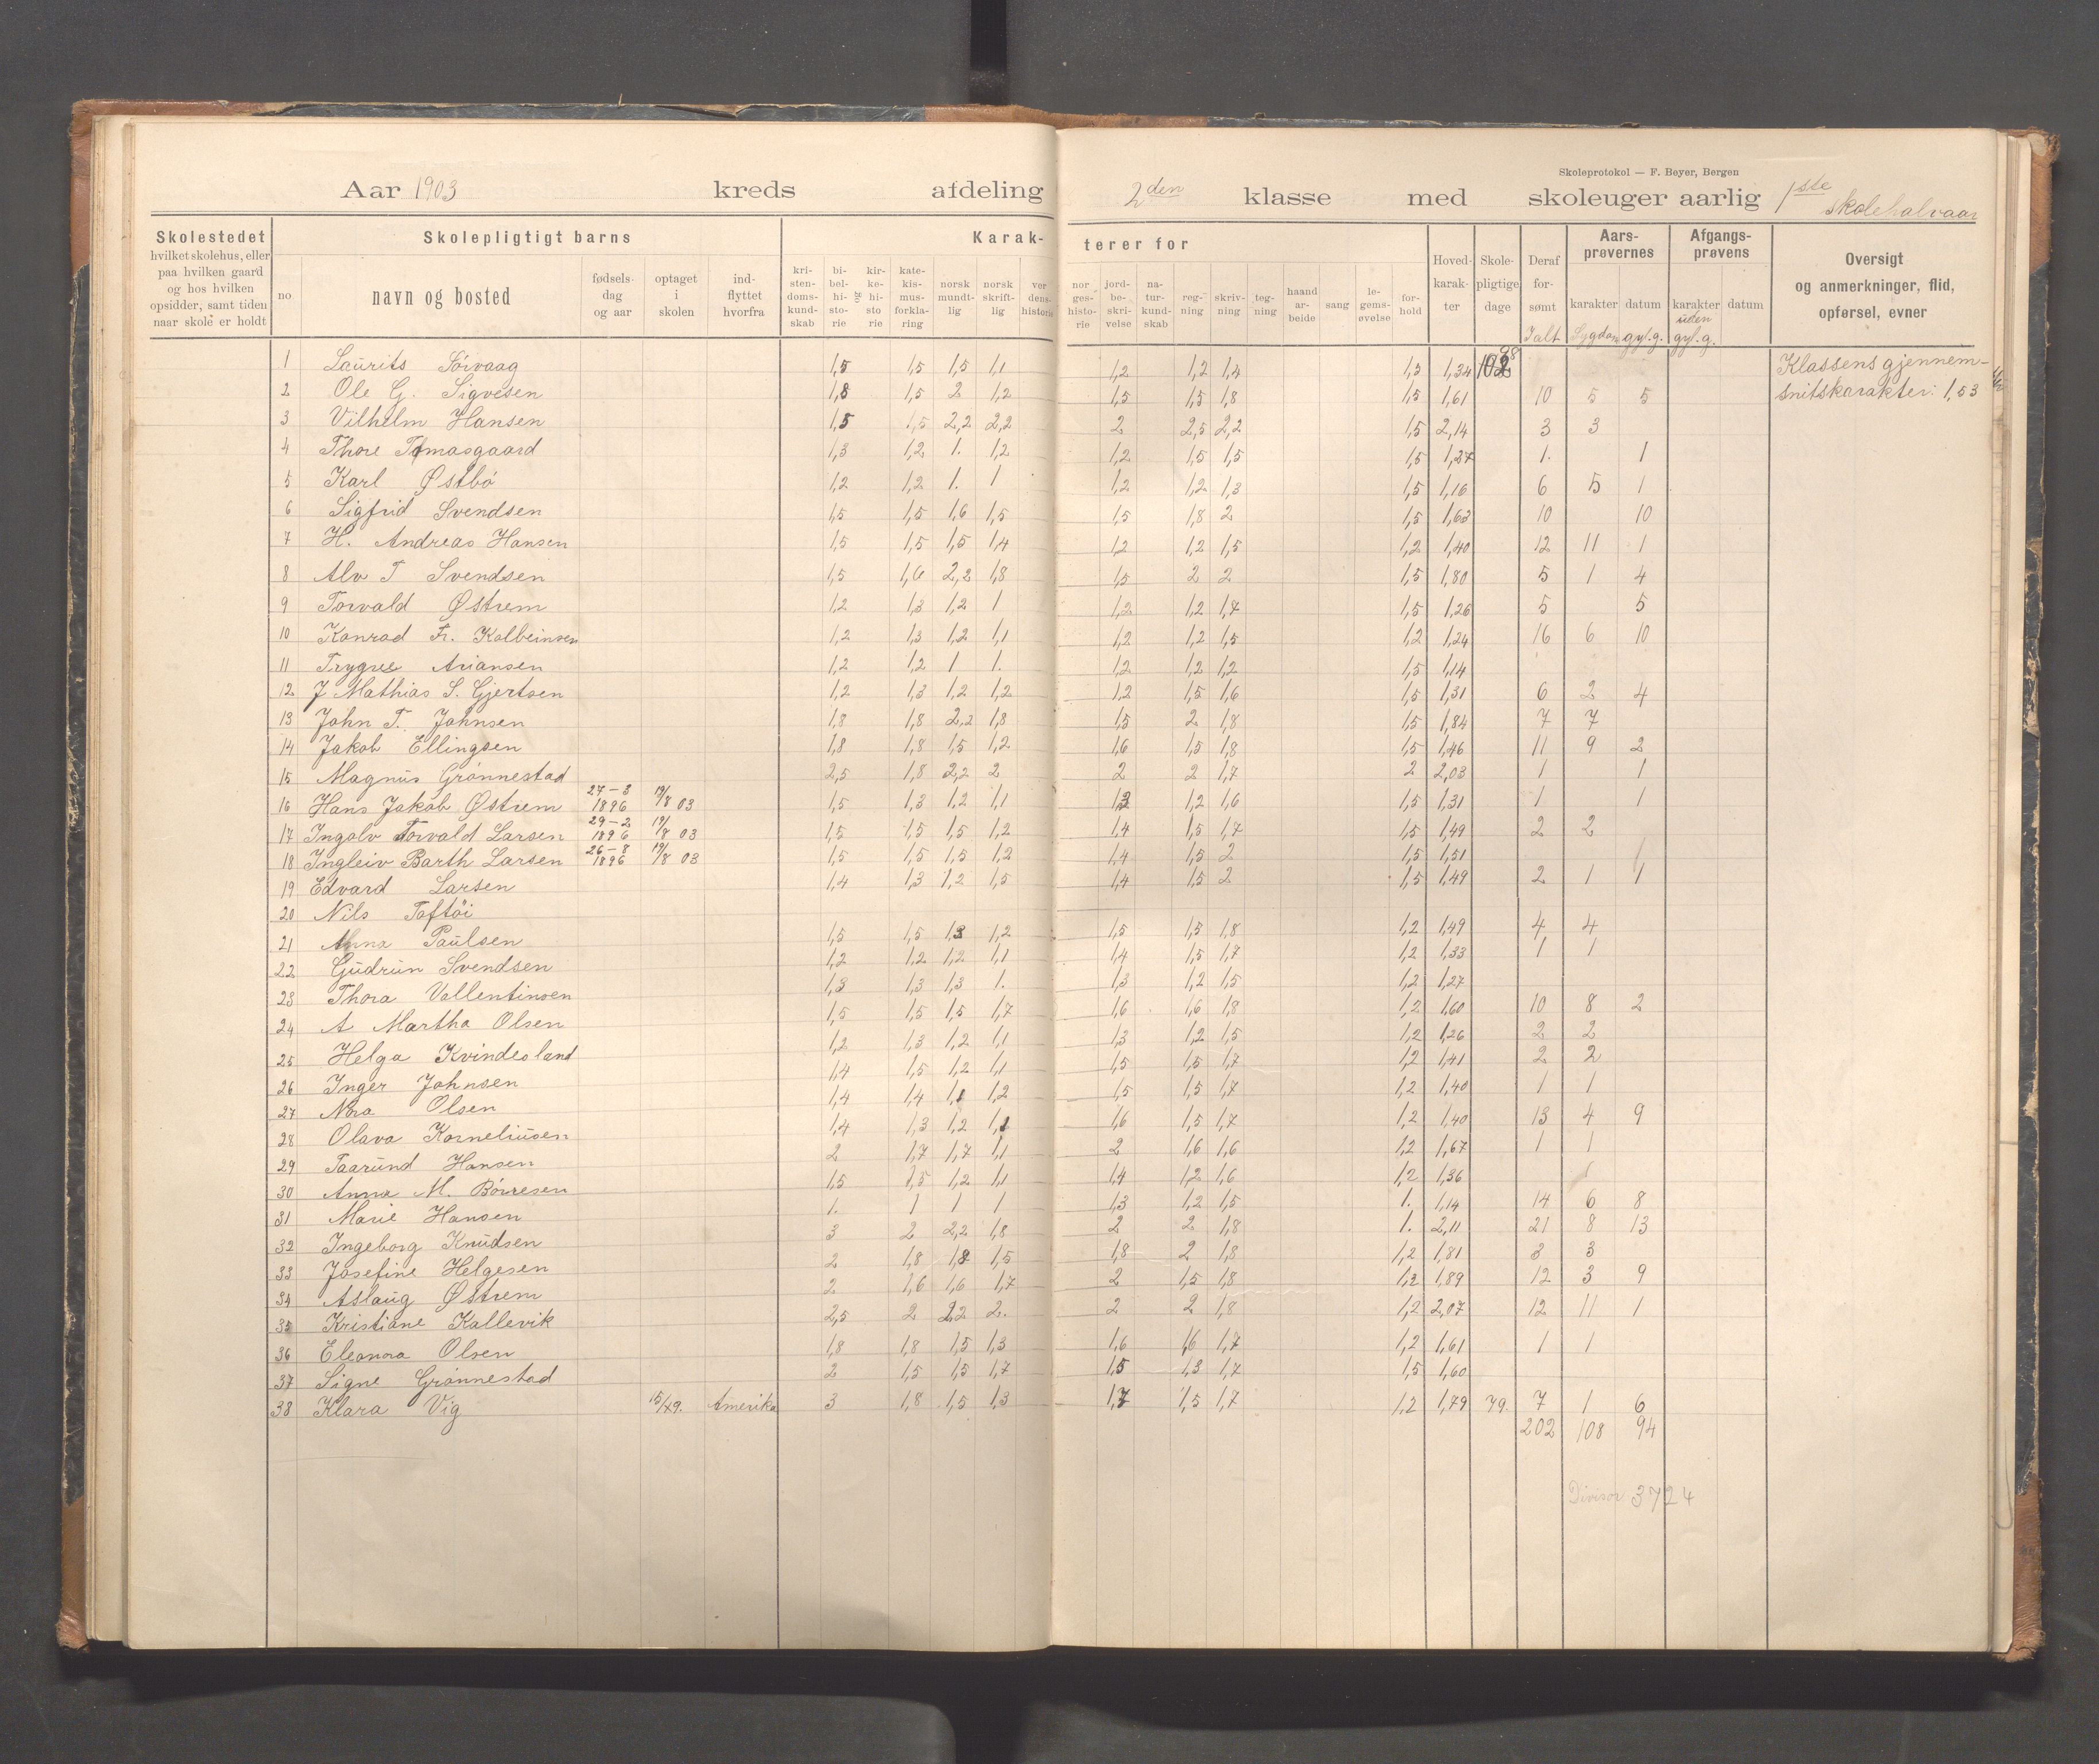 Skoleprotokol — F. Beyer, Bergen
Aar 1903 kreds afdeling 2den klasse med skoleuger aarlig 1ste skolehalvaar
Skolestedet
hvilket skolehus, eller
paa hvilken gaard
og hos hvilken
opsidder, samt tiden
naar skole er holdt
Skolepligtigt barns
no
navn og bosted
fødsels-
dag
og aar
optaget
i
skolen
ind-
flyttet
hvorfra
Karak-
terer for
kri-
sten-
doms-
kund-
skab
bi-
bel-
hi-
sto-
rie
og
kir-
ke-
hi-
sto
rie
kate-
kis-
mus-
forkla-
ring
norsk
mundt-
lig
norsk
skrift-
lig
ver
dens-
historie
nor
ges-
histo-
rie
jord-
be-
skri-
velse
na-
tur-
kund-
skab
reg-
ning
skriv-
ning
teg-
ning
haand
ar-
beide
sang
le-
gems-
øvelse
for-
hold
Hoved-
karak-
ter
Skole-
pligtige
dage
Deraf
for-
sømt
Ialt
Aars-
prøvernes
karakter datum
Sygdom gyl.g.
Afgangs-
prøvens
karakter datum
uden
gyl.g.
Oversigt
og anmerkninger, flid,
opførsel, evner
1 Laurits Sörvaag 1,5 1,5 1,5 1,1 1,2 1,2 1,4 1,5 1,34 98 Klassens gjennem-
2 Ole G. Sigvesen 1,8 1,5 2 1,2 1,5 1,5 1,8 1,5 1,61 10 5 5 snitskarakter: 1,53
3 Vilhelm Hansen 1,5 1,5 2,2 2,2 2 2,5 2,2 1,5 2,14 3 3
4 Thore Tomasgaard 1,3 1,2 1. 1,2 1,2 1,5 1,5 1,5 1,27 1. 1
5 Karl Østbö 1,2 1,2 1. 1 1,2 1,2 1,3 1,5 1,16 6 5 1
6 Sigfrid Svendsen 1,5 1,5 1,6 1,5 1,5 1,8 2 1,5 1,63 10 10
7 H. Andreas Hansen 1,5 1,5 1,5 1,4 1,2 1,2 1,5 1,2 1,40 12 11 1
8 Alv T Svendsen 1,5 1,6 2,2 1,8 1,5 2 2 1,5 1,80 5 1 4
9 Torvald Østrem 1,2 1,3 1,2 1 1,2 1,2 1,7 1,5 1,26 5 5
10 Konrad Fr. Kolbeinsen 1,2 1,3 1,2 1,1 1,2 1,2 1,5 1,2 1,24 16 6 10
11 Trygve Ariansen 1,2 1,2 1 1. 1,2 1,2 1,2 1,5 1,14
12 J Mathias S. Gjertsen 1,2 1,3 1,2 1,2 1,2 1,5 1,6 1,5 1,31 6 2 4
13 John T. Johnsen 1,8 1,8 2,2 1,8 1,5 2 1,8 1,5 1,84 7 7
14 Jakob Ellingsen 1,8 1,8 1,5 1,2 1,6 1,5 1,8 1,5 1,46 11 9 2
15 Magnus Grönnestad 2,5 1,8 2,2 2 2 2 1,7 2 2,03 1 1
16 Hans Jakob Østrem 27-3 1896 19/8 03 1,5 1,3 1,2 1,1 1,3 1,2 1,6 1,5 1,31 1 1
17 Ingolv Torvald Larsen 29-2 1896 19/8 03 1,5 1,5 1,5 1,2 1,4 1,5 1,7 1,5 1,49 2 2
18 Ingleiv Barth Larsen 26-8 1896 19/8 03 1,5 1,5 1,5 1,2 1,4 1,5 2 1,5 1,51
19 Edvard Larsen 1,4 1,3 1,2 1,5 1,4 1,5 2 1,5 1,49 2 1 1
20 Nils Toftöi
21 Anna Paulsen 1,5 1,5 1,3 1,2 1,5 1,5 1,8 1,2 1,49 4 4
22 Gudrun Svendsen 1,2 1,2 1,2 1,1 1,4 1,5 1,7 1,2 1,33 1 1
23 Thora Vallentinsen 1,3 1,3 1,3 1. 1,3 1,2 1,5 1,2 1,27
24 A Martha Olsen 1,5 1,5 1,5 1,7 1,6 1,6 1,8 1,2 1,60 10 8 2
25 Helga Kvindesland 1,2 1,3 1,2 1,1 1,3 1,2 1,5 1,2 1,26 2 2
26 Inger Johnsen 1,4 1,5 1,2 1,1 1,5 1,5 1,7 1,2 1,41 2 2
27 Nora Olsen 1,4 1,4 1,1 1,2 1,5 1,5 1,7 1,2 1,40 1 1
28 Olava Korneliusen 1,4 1,3 1,2 1,1 1,6 1,5 1,7 1,2 1,40 13 4 9
29 Taarund Hansen 2 1,7 1,7 1,1 2 1,6 1,6 1,2 1,67 1 1
30 Anna M. Börresen 1,5 1,5 1,2 1,1 1,4 1,2 1,6 1,2 1,36
31 Marie Hansen 1. 1 1 1 1,3 1,2 1,5 1. 1,14 14 6 8
32 Ingeborg Knudsen 3 2 2,2 1,8 2 2 1,8 1. 2,11 21 8 13
33 Josefine Helgesen 2 1,8 1,8 1,5 1,8 2 1,8 1,2 1,81 3 3
34 Aslaug Østrem 2 1,6 1,6 1,7 2 1,5 1,8 1,2 1,89 12 3 9
35 Kristiane Kallevik 2,5 2 2,2 2. 2 2 1,8 1,2 2,07 12 11 1
36 Eleonora Olsen 1,8 1,8 1,5 1,3 1,6 1,6 1,7 1,2 1,61 1 1
37 Signe Grönnestad 2 1,5 1,5 1,7 1,5 1,3 1,7 1,5 1,60
38 Klara Vig 15/49. Amerika 3 1,8 1,5 1,3 1,7 1,5 1,7 1,2 1,79 79. 7 1 6
202 108 94
Divisor 3724